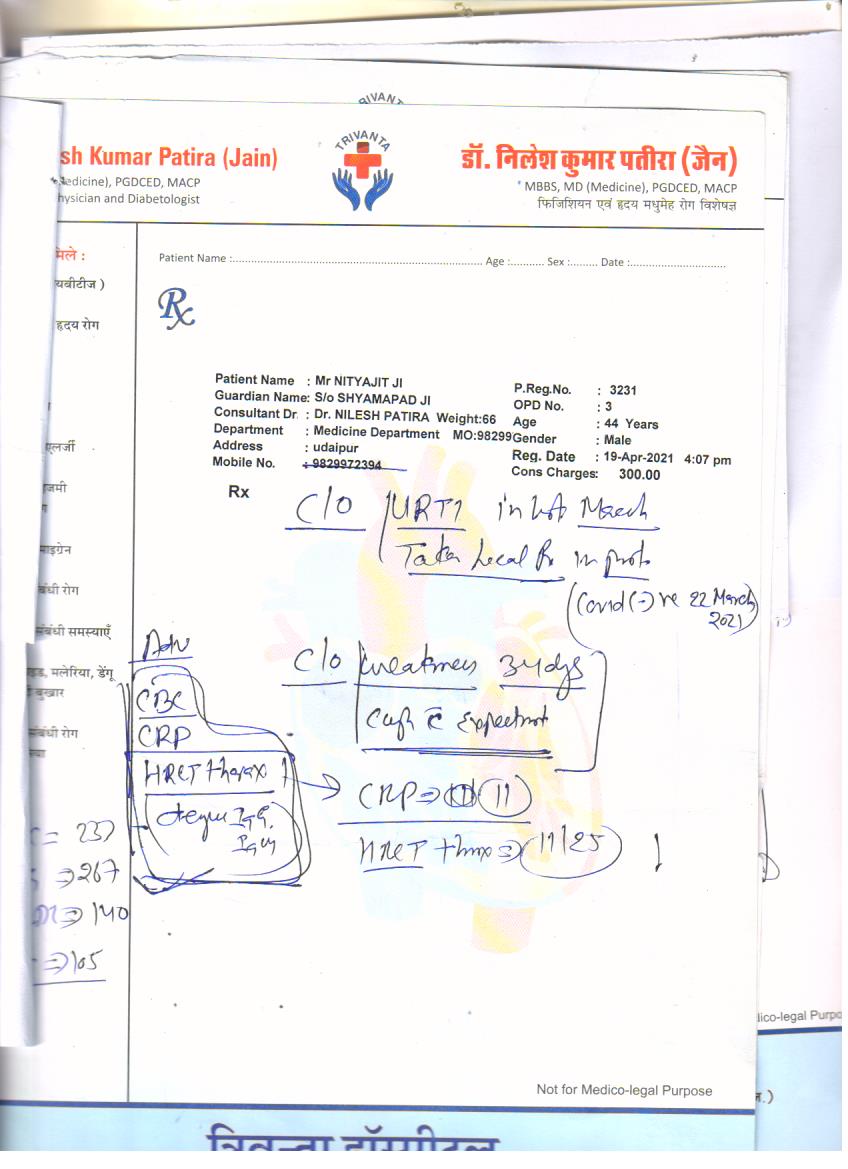 RIVANT
TRIVANTA
sh Kumar Patira (Jain)
Medicine), PGDCED, MACP
hysician and Diabetologist
डॉ. निलेश कुमार पतीरा (जैन)
MBBS, MD (Medicine), PGDCED, MACP
फिजिशियन एवं हृदय मधुमेह रोग विशेषज्ञ
मिले :
यबीटीज )
हृदय रोग
एलर्जी
माइग्रेन
बंधी रोग
संबंधी समस्याएँ
इड, मलेरिया, डेंगू
बुखार
संबंधी रोग
Patient Name :.......... Age :.......... Sex :........ Date :..........
Rx
Patient Name : Mr NITYAJIT JI
Guardian Name: S/o SHYAMAPAD JI
Consultant Dr. : Dr. NILESH PATIRA Weight:66
Department : Medicine Department MO:98299
Address : udaipur
Mobile No. : 9829972394
P.Reg.No. : 3231
OPD No. : 3
Age : 44 Years
Gender : Male
Reg. Date : 19-Apr-2021 4:07 pm
Cons Charges: 300.00
Rx
C/O URTI in March
Taken Local Rx in
Covid (-)ve 22 March
2021
C/O weakness 3-4 dys
Cough c̄ Expectorat
Adv
CBC
CRP
HRCT thorax
IgG,
IgM
CRP ⇒ 11
HRCT thorax ⇒ 11/25
= 237
⇒ 267
⇒ 140
⇒ 105
Not for Medico-legal Purpose
dico-legal Purpo
त्रिवन्ता हॉस्पीटल